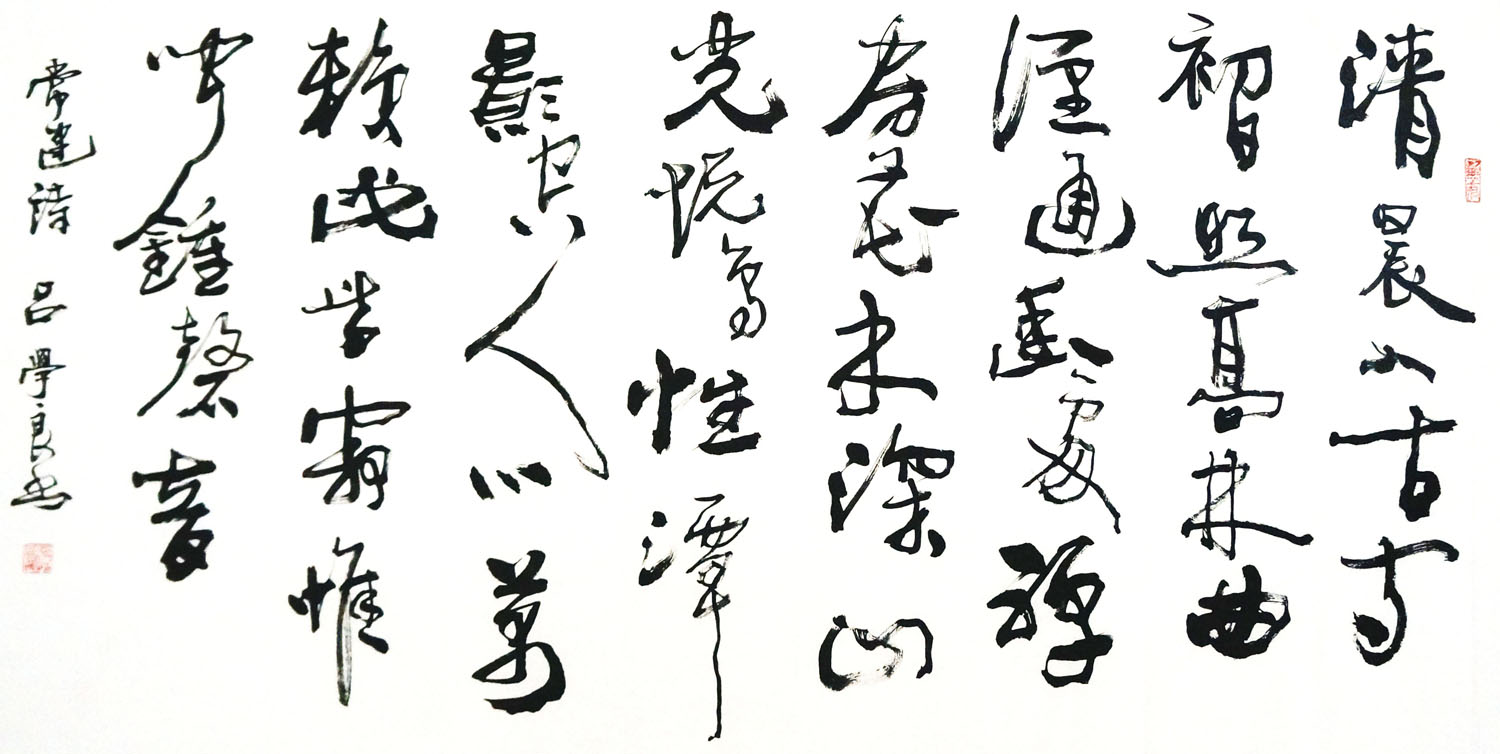 清晨入古寺
初日照高林曲
徑通幽處禪
房花木深山
光悅鳥性潭
影空人心萬
籟此皆寂惟
聞鍾磬音
常建詩 呂學良書